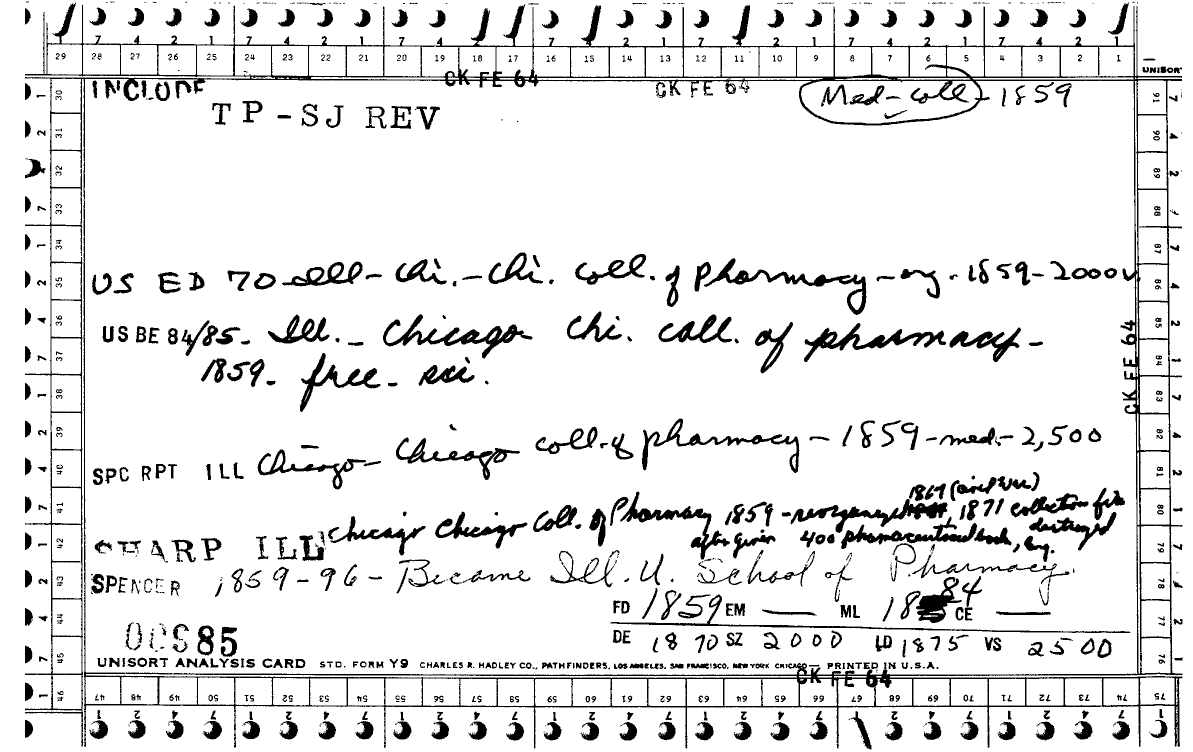 7 4 2 1 7 4 2 1 7 4 2 1 7 4 2 1 7 4 2 1 7 4 2 1 7 4 2 1
29 28 27 26 25 24 23 22 21 20 19 18 17 16 15 14 13 12 11 10 9 8 7 6 5 4 3 2 1
UNISORT
CK FE 64 CK FE 64
INCLUDE
(Med-coll) - 1859
TP-SJ REV
US ED 70 Ill - Chi. - Chi. Coll. of Pharmacy - org. 1859 - 2000v.
US BE 84/85. Ill. - Chicago Chi. coll. of pharmacy -
1859 - free - sci.
CK FE 64
SPC RPT ILL Chicago - Chicago coll. of pharmacy - 1859 - med. - 2,500
1867 (civil War)
SHARP ILL Chicago Chicago Coll. of Pharmacy 1859 - reorganized 1871 collection fire destroyed
after given 400 pharmaceutical books, Eng.
SPENCER 1859-96 - Became Ill. U. School of Pharmacy.
FD 1859 EM — ML 1884 CE —
OCS85
DE 1870 SZ 2000 LD 1875 VS 2500
UNISORT ANALYSIS CARD STD. FORM Y9 CHARLES R. HADLEY CO., PATHFINDERS, LOS ANGELES, SAN FRANCISCO, NEW YORK CHICAGO — PRINTED IN U.S.A.
CK FE 64
30 31 32 33 34 35 36 37 38 39 40 41 42 43 44 45 46
91 90 89 88 87 86 85 84 83 82 81 80 79 78 77 76 75
47 48 49 50 51 52 53 54 55 56 57 58 59 60 61 62 63 64 65 66 67 68 69 70 71 72 73 74